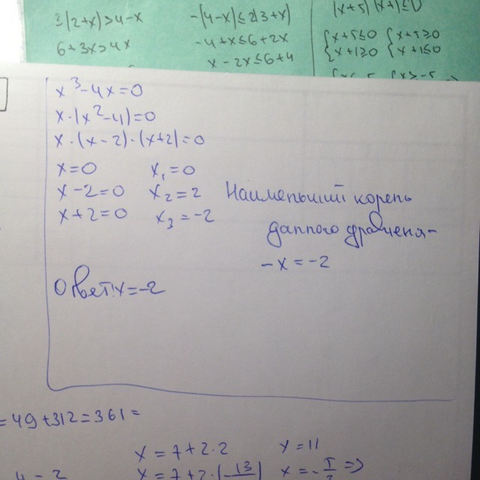 3(2+x)>4-x
6+3x>4x
-(4-x)≤2(3+x)
-4+x≤6+2x
x-2x≤6+4
(x+5)(x+1)≤0
{x+5≤0 {x+5≥0
{x+1≥0 {x+1≤0
x³-4x=0
x·(x²-4)=0
x·(x-2)·(x+2)=0
x=0 x₁=0
x-2=0 x₂=2
x+2=0 x₃=-2
Наименьший корень
данного уравненя-
-x=-2
Ответ:x=-2
=49+312=361=
x=7+2·2 x=11